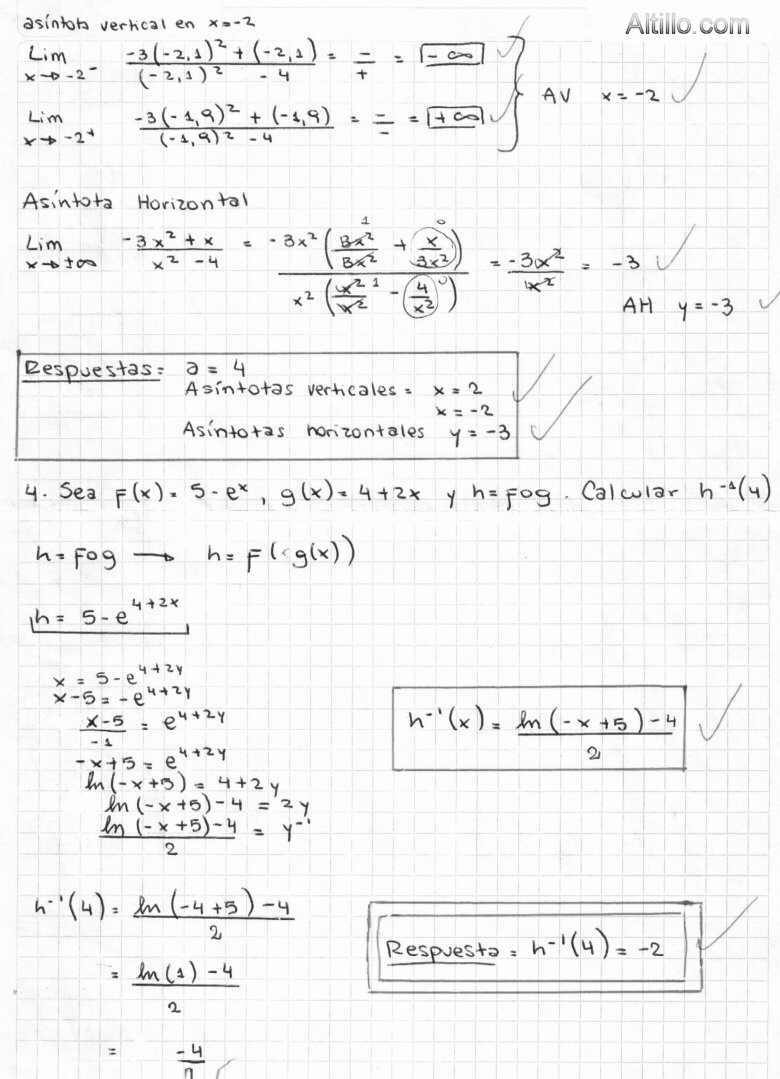 Altillo.com
asíntota vertical en x=-2
Lim x→-2⁻ (-3(-2,1)² + (-2,1))/((-2,1)² - 4) = -/+ = -∞
Lim x→-2⁺ (-3(-1,9)² + (-1,9))/((-1,9)² - 4) = -/- = +∞
AV x=-2
Asíntota Horizontal
Lim x→±∞ (-3x² + x)/(x² - 4) = (-3x² (3x²/3x² 1 + x/3x² 0))/(x² (x²/x² 1 - 4/x² 0)) = -3x²/x² = -3
AH y=-3
Respuestas: a = 4
Asíntotas verticales = x=2
x=-2
Asíntotas horizontales y=-3
4. Sea F(x)=5-eˣ, g(x)=4+2x y h=Fog. Calcular h⁻¹(4)
h=Fog → h=F(g(x))
h= 5-e^(4+2x)
x = 5-e^(4+2y)
x-5 = -e^(4+2y)
(x-5)/-1 = e^(4+2y)
-x+5 = e^(4+2y)
ln(-x+5) = 4+2y
ln(-x+5)-4 = 2y
(ln(-x+5)-4)/2 = y⁻¹
h⁻¹(x) = (ln(-x+5)-4)/2
h⁻¹(4) = (ln(-4+5)-4)/2
= (ln(1)-4)/2
= -4/2
Respuesta = h⁻¹(4) = -2